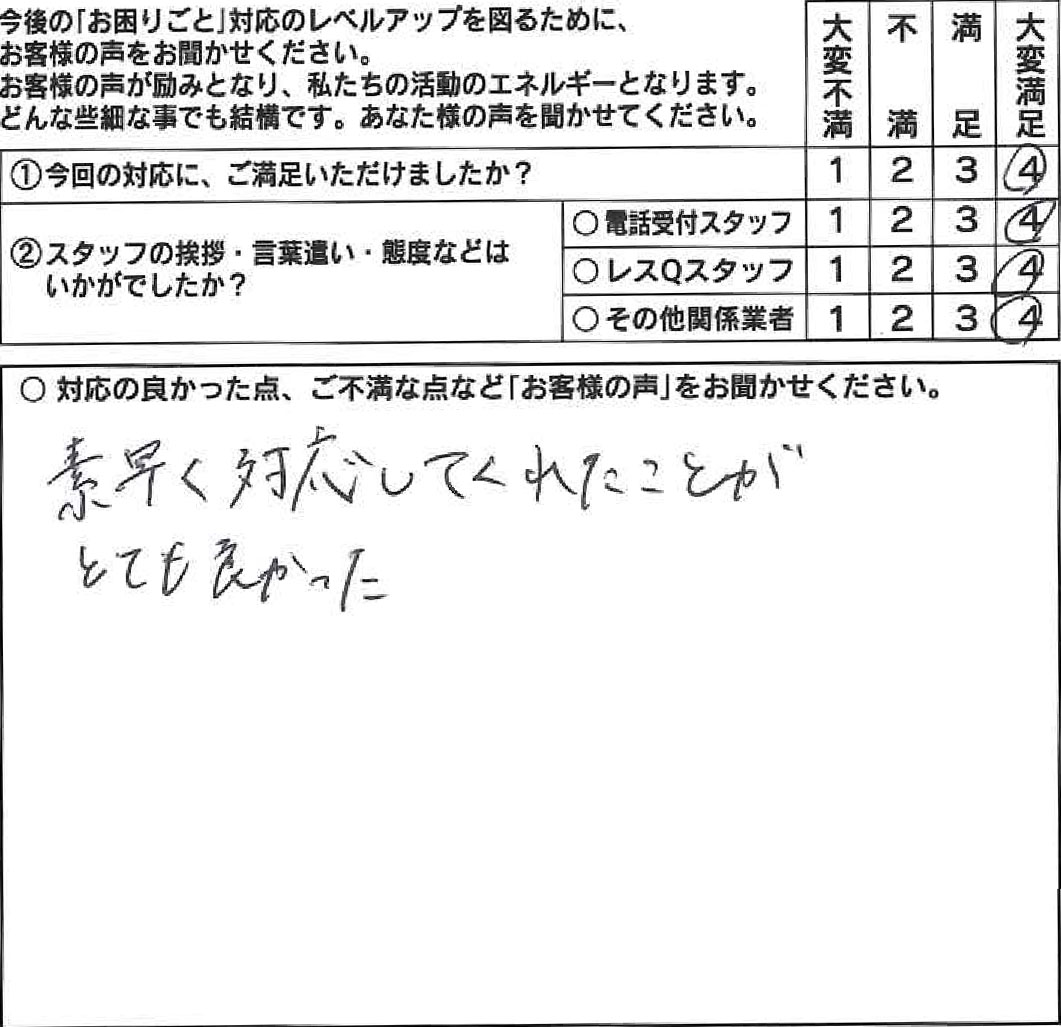 今後の「お困りごと」対応のレベルアップを図るために、
お客様の声をお聞かせください。
お客様の声が励みとなり、私たちの活動のエネルギーとなります。
どんな些細な事でも結構です。あなた様の声を聞かせてください。
大変不満 不満 満足 大変満足
①今回の対応に、ご満足いただけましたか？ 1 2 3 4
②スタッフの挨拶・言葉遣い・態度などは
いかがでしたか？
○電話受付スタッフ 1 2 3 4
○レスQスタッフ 1 2 3 4
○その他関係業者 1 2 3 4
○対応の良かった点、ご不満な点など「お客様の声」をお聞かせください。
素早く対応してくれたことが
とても良かった